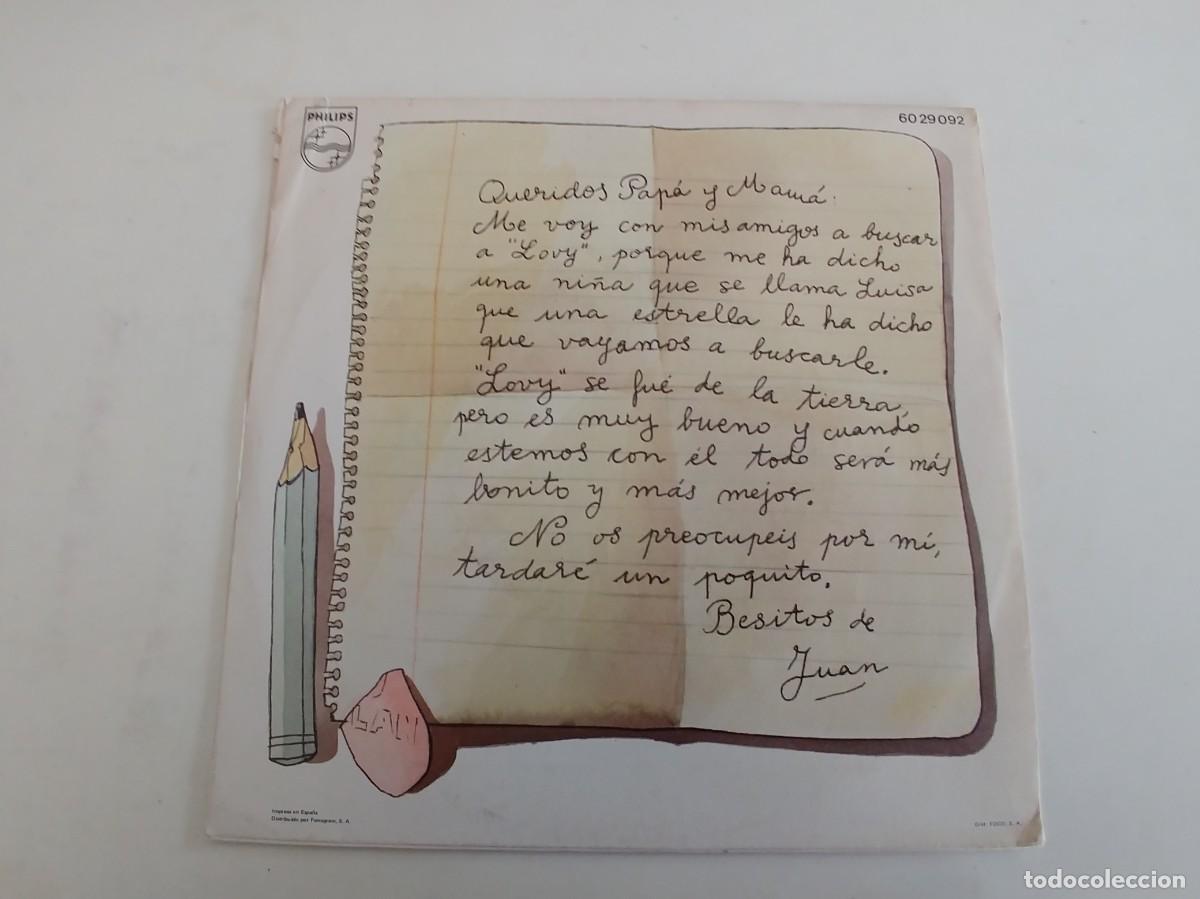 PHILIPS
60 29 092
Queridos Papá y Mamá:
Me voy con mis amigos a buscar
a "Lovy", porque me ha dicho
una niña que se llama Luisa
que una estrella le ha dicho
que vayamos a buscarle.
"Lovy" se fué de la tierra,
pero es muy bueno y cuando
estemos con él todo será más
bonito y más mejor.
No os preocupeis por mí,
tardaré un poquito.
Besitos de
Juan
Impreso en España
Distribuido por Fonogram, S. A.
Gráf. FOCO, S. A.
todocoleccion